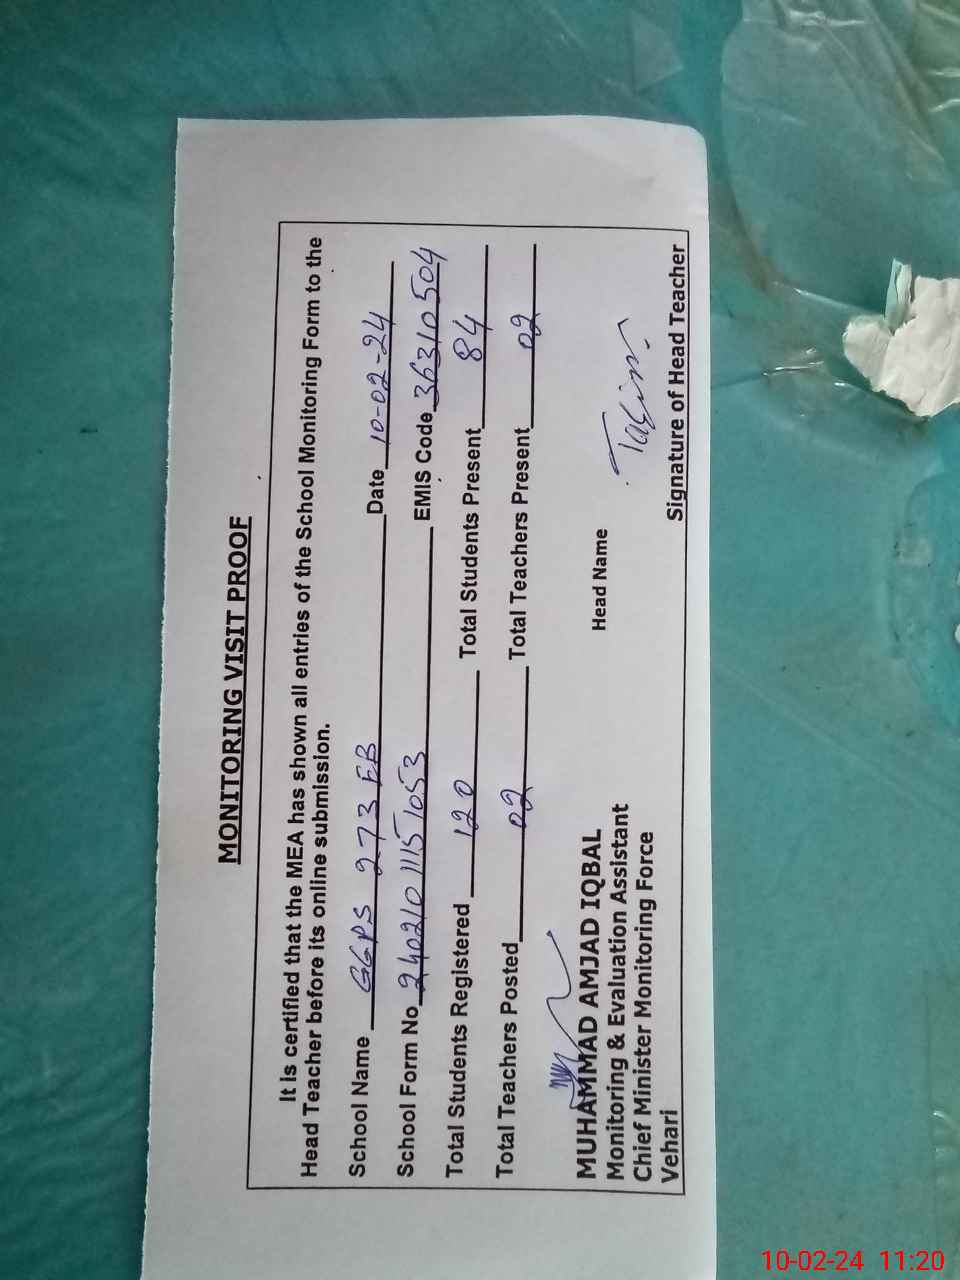 MONITORING VISIT PROOF
It is certified that the MEA has shown all entries of the School Monitoring Form to the
Head Teacher before its online submission.
School Name GGPS 273 EB Date 10-02-24
School Form No 240210 1115 1053 EMIS Code 36310504
Total Students Registered 120 Total Students Present 84
Total Teachers Posted 02 Total Teachers Present 02
MUHAMMAD AMJAD IQBAL
Monitoring & Evaluation Assistant
Chief Minister Monitoring Force
Vehari
Head Name
Signature of Head Teacher
10-02-24 11:20